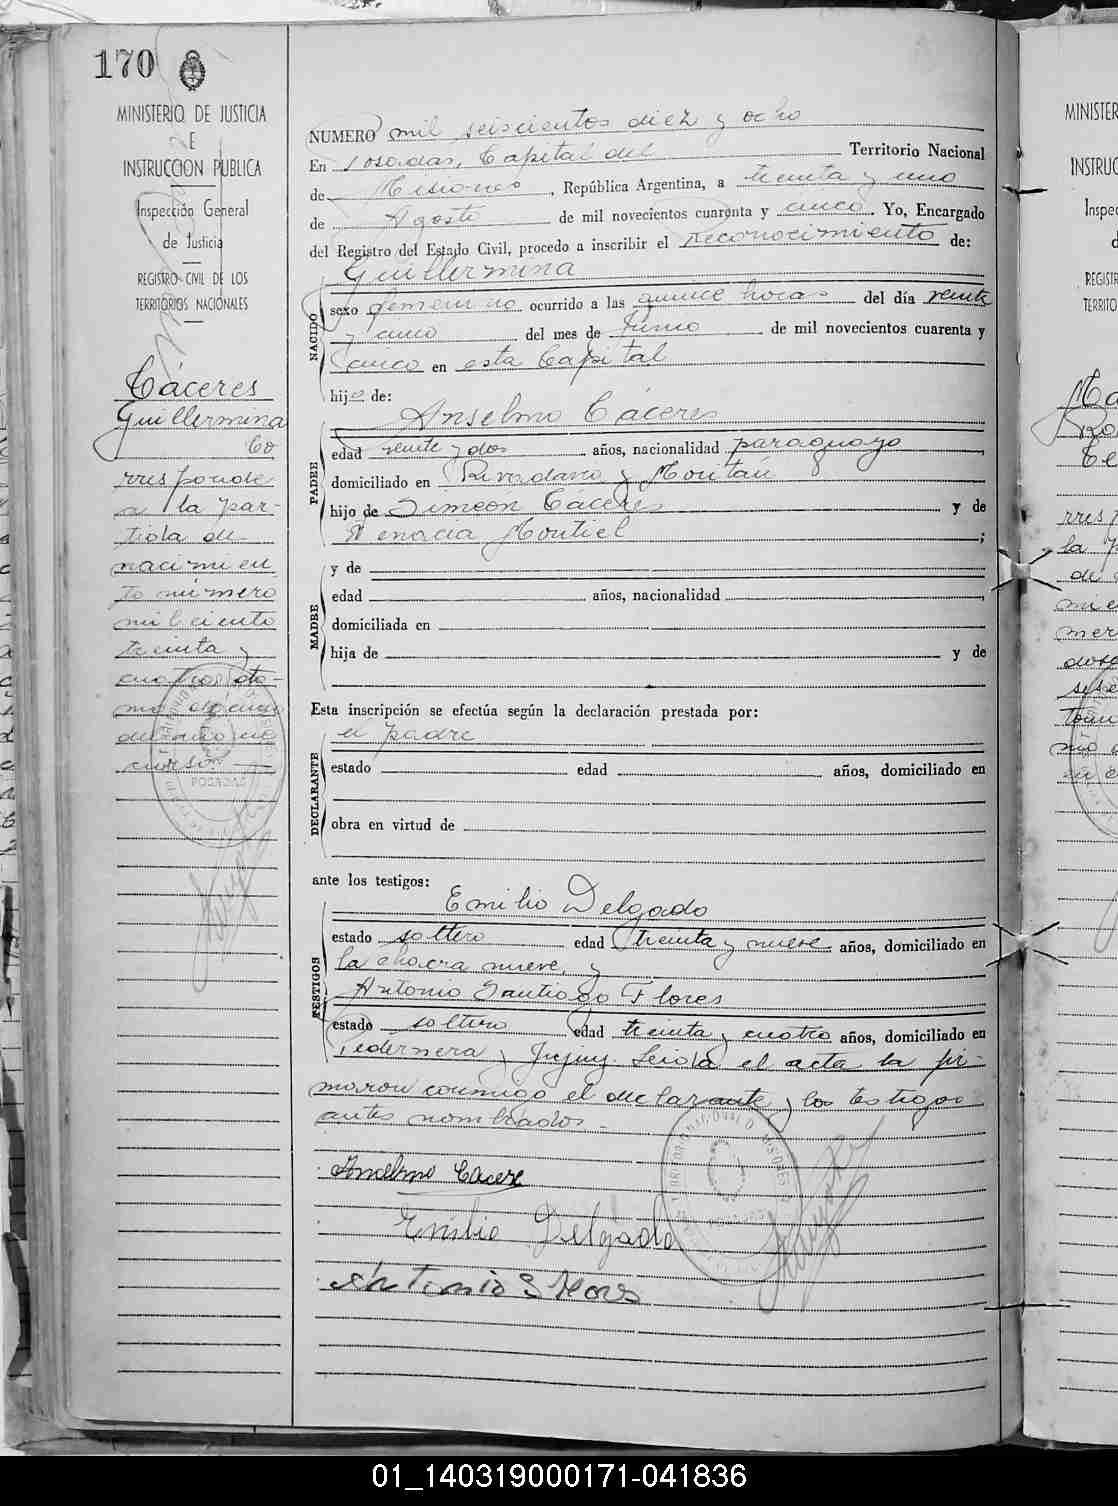 170
MINISTERIO DE JUSTICIA
E
INSTRUCCION PUBLICA
Inspección General
de Justicia
REGISTRO CIVIL DE LOS
TERRITORIOS NACIONALES
Cáceres
Guillermina
Co
rresponde
a la par-
tida de
nacimien
to número
mil ciento
treinta y
cuatro to-
mo
del año en
curso.
POSADAS
NUMERO mil seiscientos diez y ocho
En Posadas, Capital del Territorio Nacional
de Misiones, República Argentina, a treinta y uno
de Agosto de mil novecientos cuarenta y cinco Yo, Encargado
del Registro del Estado Civil, procedo a inscribir el Reconocimiento de:
Guillermina
NACIDO
sexo femenino ocurrido a las quince horas del día veinte
y cinco del mes de Junio de mil novecientos cuarenta y
cinco en esta Capital
hijo de:
Anselmo Cáceres
PADRE
edad veinte y dos años, nacionalidad paraguayo
domiciliado en Rivadavia y
hijo de Simeon Cáceres y de
Montiel;
y de
MADRE
edad años, nacionalidad
domiciliada en
hija de y de
Esta inscripción se efectúa según la declaración prestada por:
el padre
DECLARANTE
estado edad años, domiciliado en
obra en virtud de
ante los testigos:
Emilio Delgado
TESTIGOS
estado soltero edad treinta y nueve años, domiciliado en
la chacra nueve, y
Antonio Santiago Flores
estado soltero edad treinta y cuatro años, domiciliado en
Pedernera y Jujuy. Leida el acta la fir-
maron conmigo el declarante y los testigos
antes nombrados.-
Anselmo Cacere
Emilio Delgado
Antonio S Flores
MINISTER
INSTRUC
Inspec
d
REGISTR
TERRITO
rres
la
de
mie
mer
01_140319000171-041836